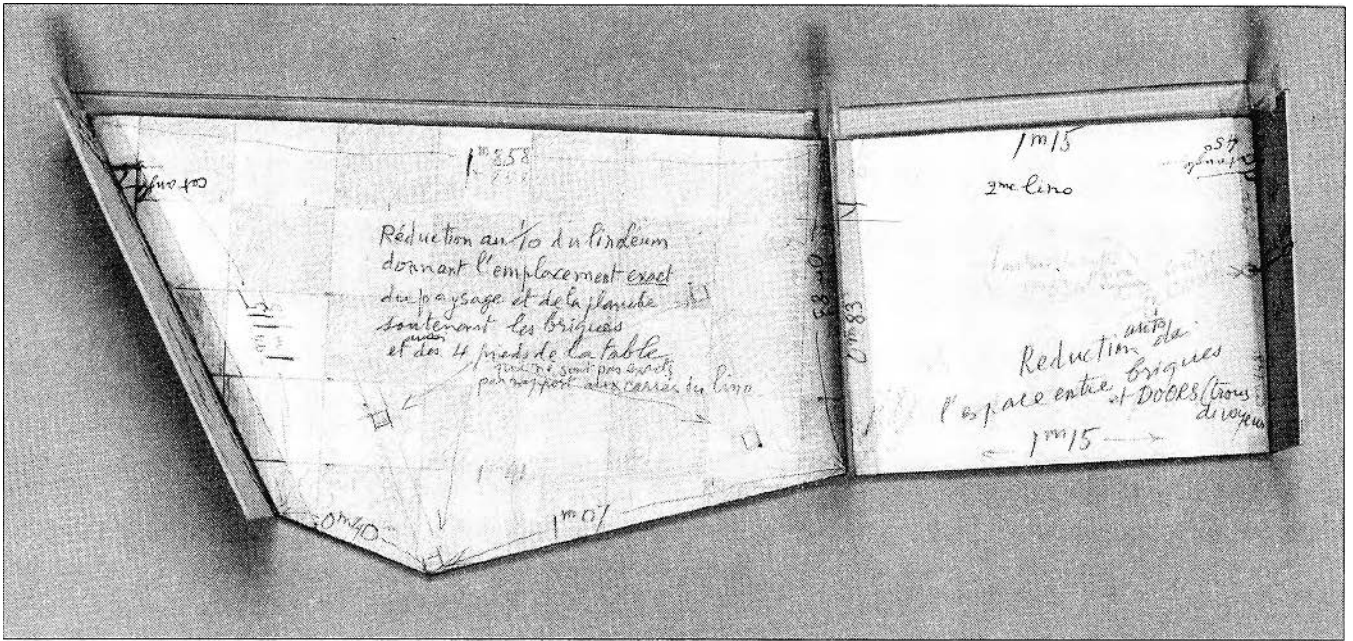 1m858
cet angle
Réduction au 1/10 du linoleum
donnant l'emplacement exact
du paysage et de la planche
soutenant les briques
et des 4 pieds de la table
qui ne sont pas exacts
par rapport aux carrés du lino
0m40
1m07
0m83
0m83
1m15
2me lino
45°
cet angle
Réduction au 1/10 de
l'espace entre briques
et DOORS (trous
de voyeur
1m15